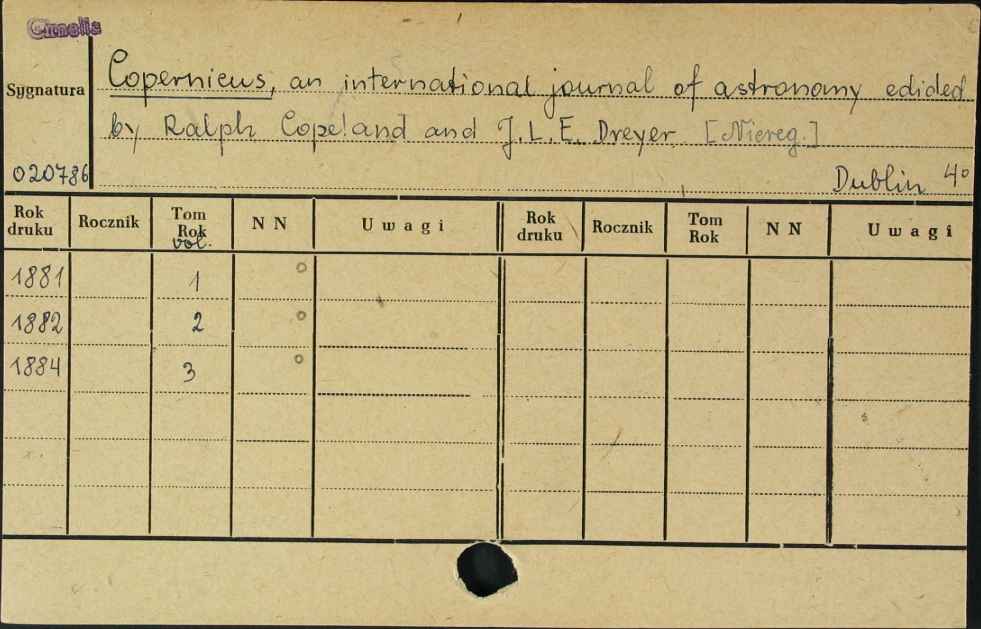 Sygnatura
Copernicus, an international journal of astronomy edided
by Ralph Copeland and J.L.E. Dreyer [Niereg.]
020786
Dublin 4º
Rok druku Rocznik Tom Rok vol. N N Uwagi Rok druku Rocznik Tom Rok N N Uwagi
1881 1 o
1882 2 o
1884 3 o